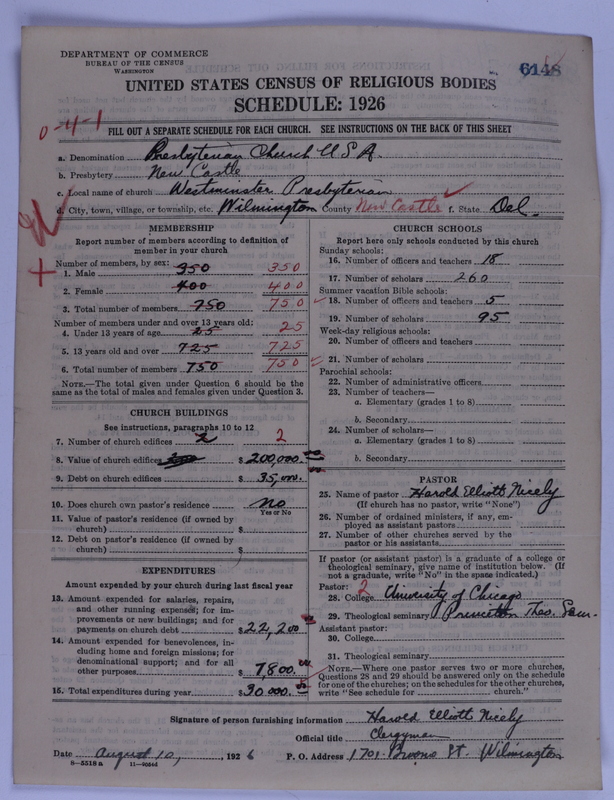 DEPARTMENT OF COMMERCE
BUREAU OF THE CENSUS
WASHINGTON
6148
UNITED STATES CENSUS OF RELIGIOUS BODIES
SCHEDULE: 1926
0-4-1
FILL OUT A SEPARATE SCHEDULE FOR EACH CHURCH. SEE INSTRUCTIONS ON THE BACK OF THIS SHEET
a. Denomination Presbyterian Church U S A.
b. Presbytery New Castle
c. Local name of church Westminster Presbyterian
d. City, town, village, or township, etc. Wilmington County New Castle f. State Del.
MEMBERSHIP
Report number of members according to definition of
member in your church
Number of members, by sex:
1. Male 350 350
2. Female 400 400
3. Total number of members 750 750
Number of members under and over 13 years old:
4. Under 13 years of age 25 25
5. 13 years old and over 725 725
6. Total number of members 750 750
NOTE.—The total given under Question 6 should be the
same as the total of males and females given under Question 3.
CHURCH BUILDINGS
See instructions, paragraphs 10 to 12
7. Number of church edifices 2 2
8. Value of church edifices $ 200,000.00
9. Debt on church edifices $ 35,000.00
10. Does church own pastor's residence No
Yes or No
11. Value of pastor's residence (if owned by
church) $
12. Debt on pastor's residence (if owned by
church) $
EXPENDITURES
Amount expended by your church during last fiscal year
13. Amount expended for salaries, repairs,
and other running expenses; for im-
provements or new buildings; and for
payments on church debt $ 22,200.00
14. Amount expended for benevolences, in-
cluding home and foreign missions; for
denominational support; and for all
other purposes $ 7,800.00
15. Total expenditures during year $ 30000.00
CHURCH SCHOOLS
Report here only schools conducted by this church
Sunday schools:
16. Number of officers and teachers 18
17. Number of scholars 260
Summer vacation Bible schools:
18. Number of officers and teachers 5
19. Number of scholars 95
Week-day religious schools:
20. Number of officers and teachers
21. Number of scholars
Parochial schools:
22. Number of administrative officers
23. Number of teachers—
a. Elementary (grades 1 to 8)
b. Secondary
24. Number of scholars—
a. Elementary (grades 1 to 8)
b. Secondary
PASTOR
25. Name of pastor Harold Elliott Nicely
(If church has no pastor, write "None")
26. Number of ordained ministers, if any, em-
ployed as assistant pastors
27. Number of other churches served by the
pastor or his assistants
If pastor (or assistant pastor) is a graduate of a college or
theological seminary, give name of institution below. (If
not a graduate, write "No" in the space indicated.)
Pastor: 2
28. College University of Chicago
29. Theological seminary Princeton Theo. Sem.
Assistant pastor:
30. College
31. Theological seminary
NOTE.—Where one pastor serves two or more churches,
Questions 28 and 29 should be answered only on the schedule
for one of the churches; on the schedules for the other churches,
write "See schedule for church."
Signature of person furnishing information Harold Elliott Nicely
Official title Clergyman
Date August 10, 1926 P. O. Address 1701 Broome St. Wilmington
8—5518 a